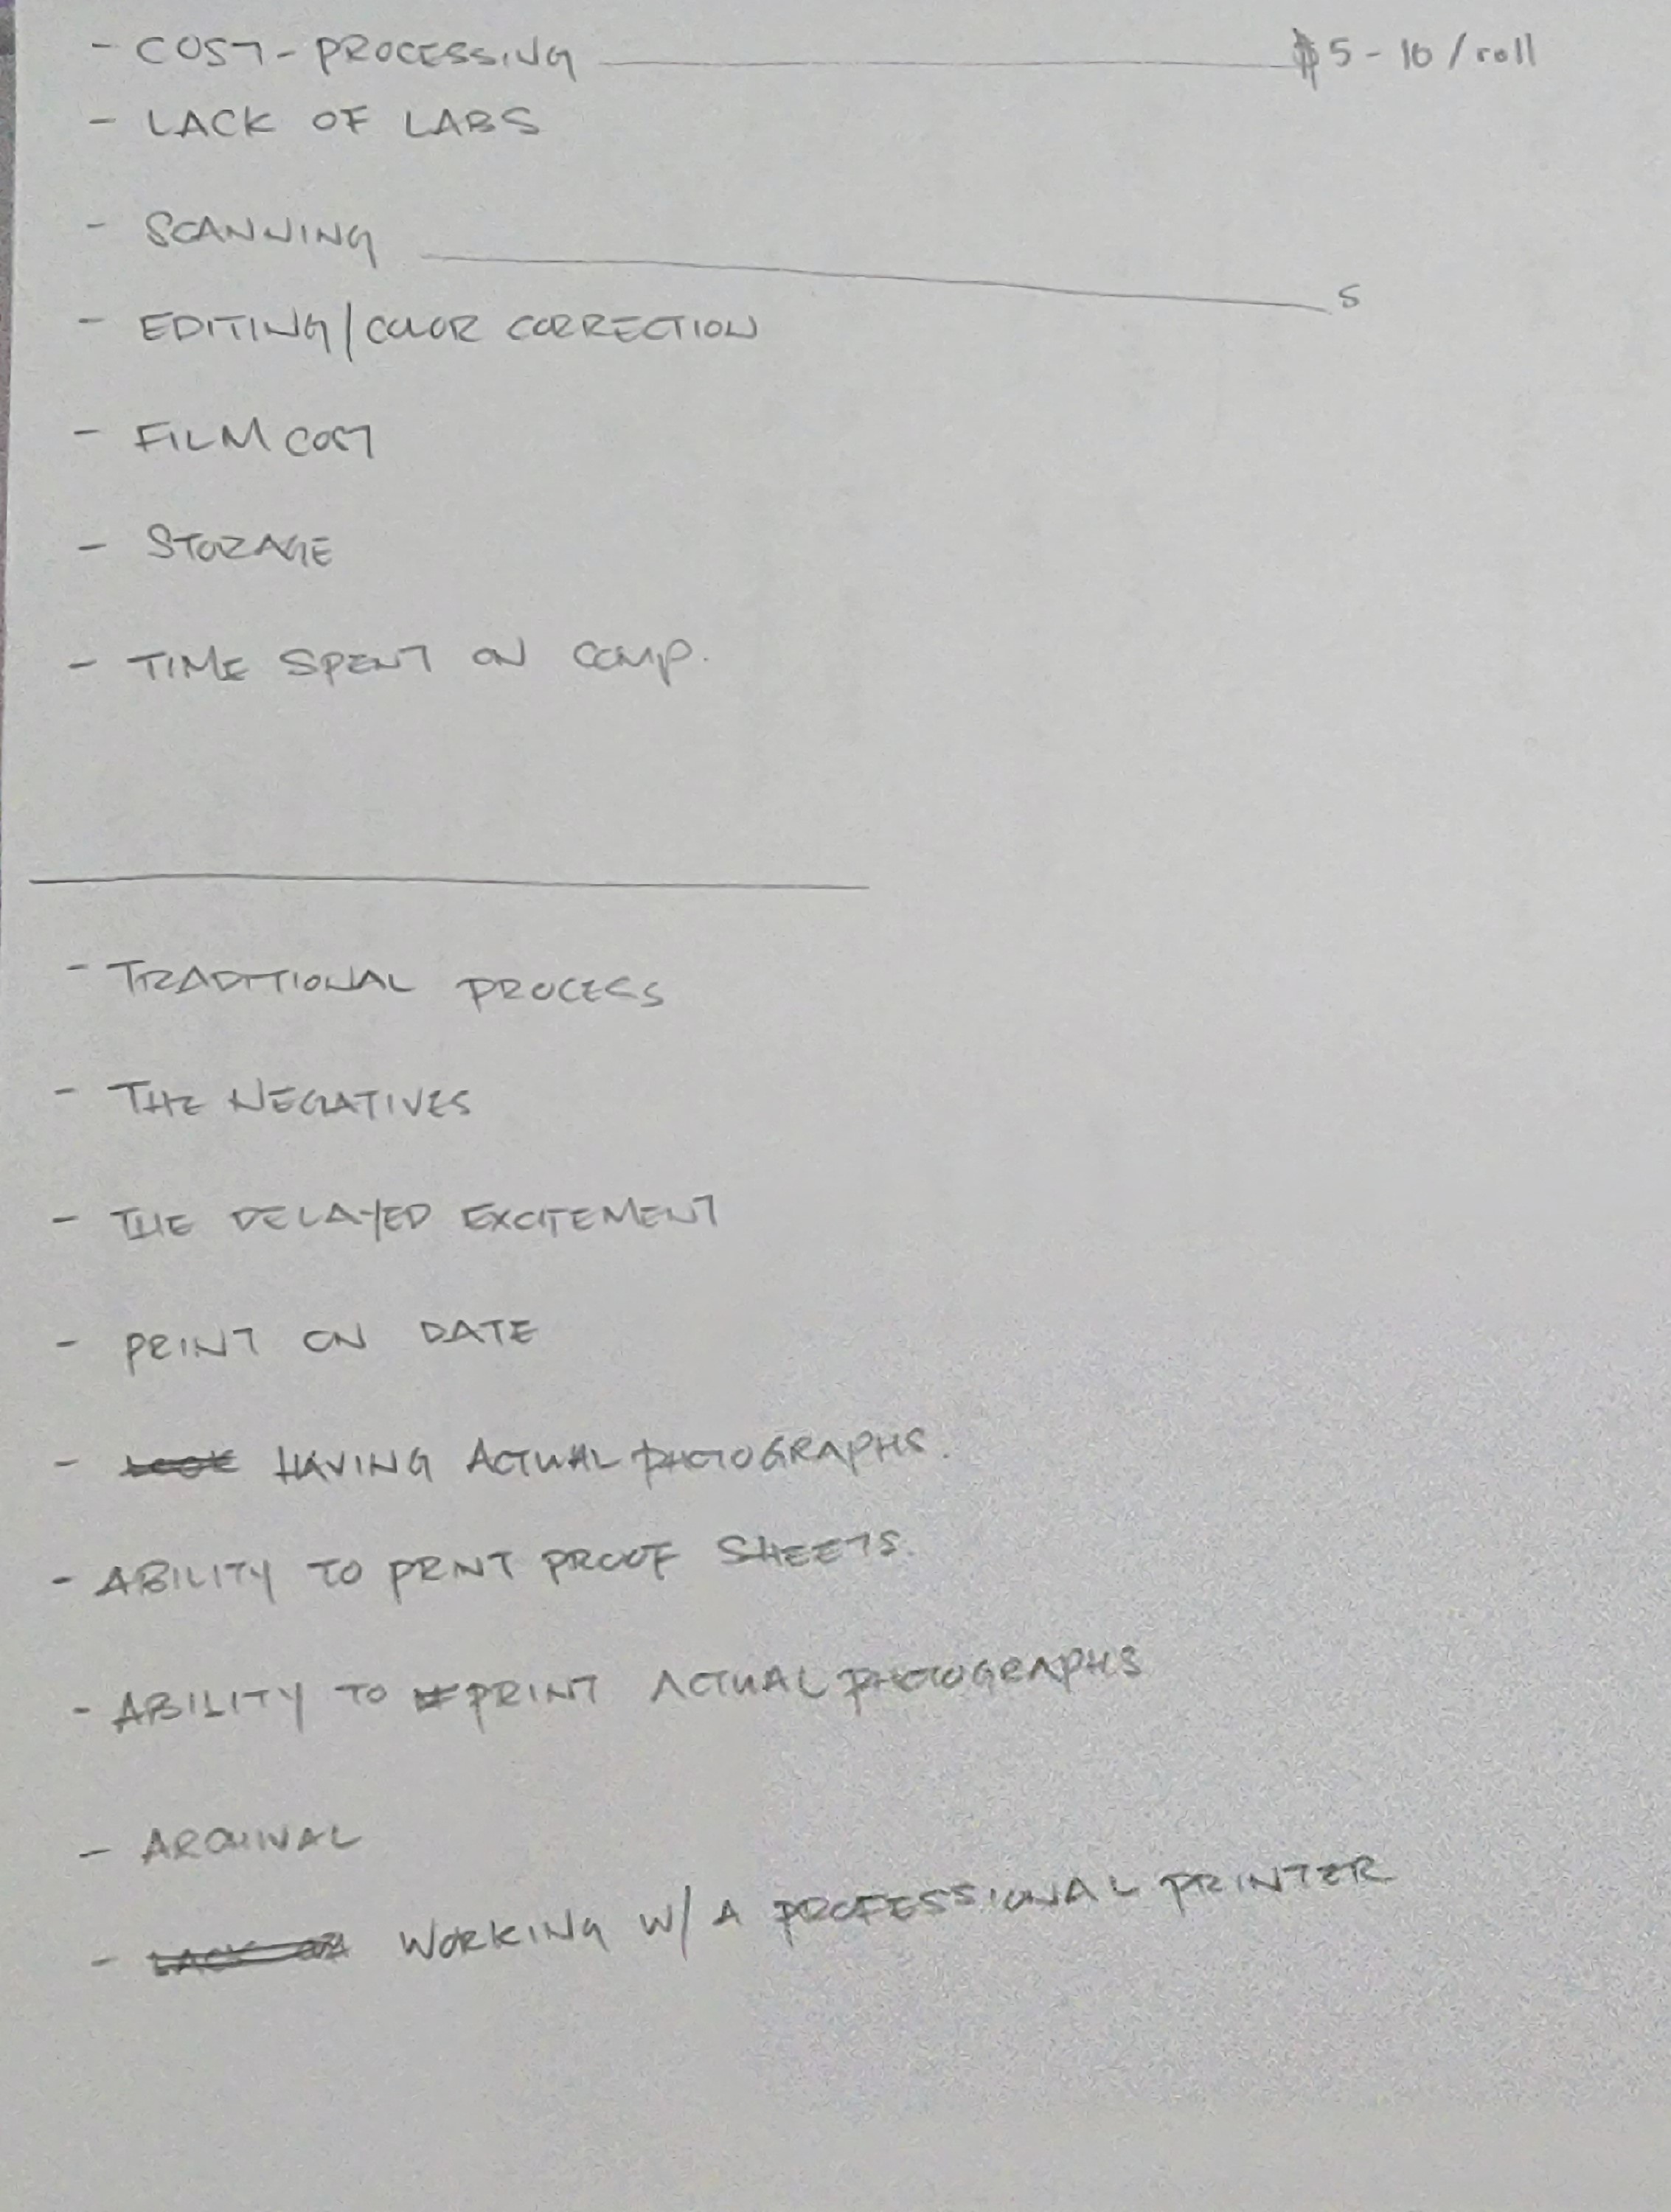 - COST - PROCESSING $5 - 10 / roll
- LACK OF LABS
- SCANNING 5
- EDITING/COLOR CORRECTION
- FILM COST
- STORAGE
- TIME SPENT ON COMP.
- TRADITIONAL PROCESS
- THE NEGATIVES
- THE DELAYED EXCITEMENT
- PRINT ON DATE
- HAVING ACTUAL PHOTOGRAPHS.
- ABILITY TO PRINT PROOF SHEETS.
- ABILITY TO PRINT ACTUAL PHOTOGRAPHS
- ARCHIVAL
- WORKING W/ A PROFESSIONAL PRINTER